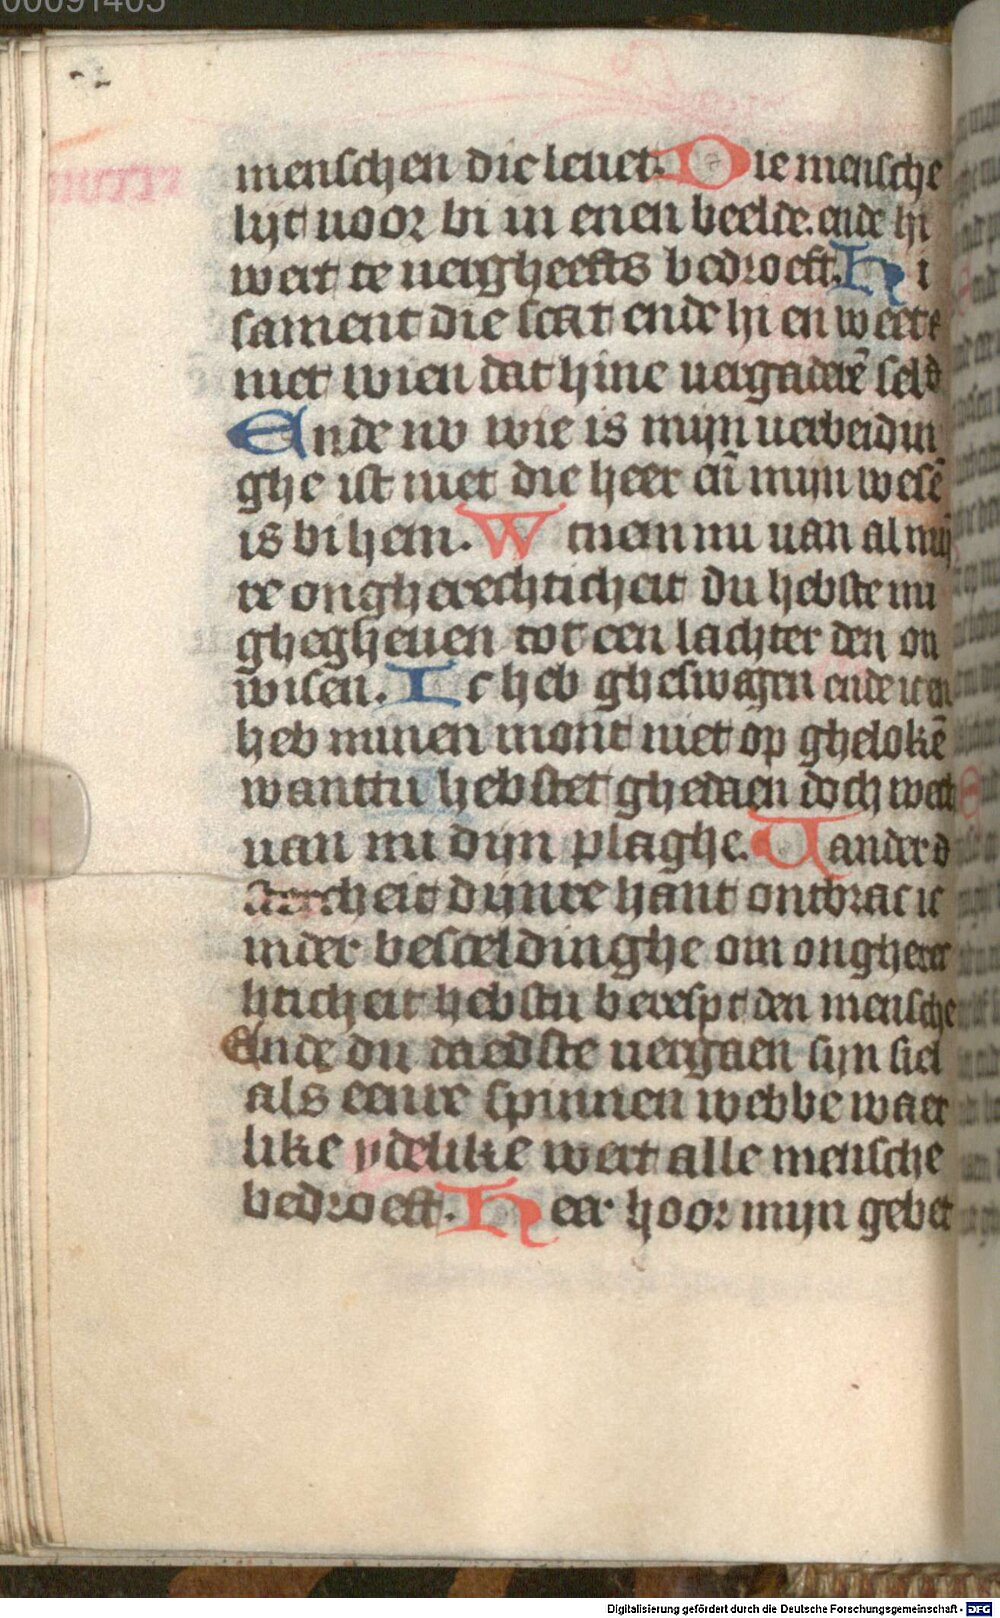 00091405
menschen die leuet. Die mensche
lijt uoor bi in enen beelde. ende hi
wert te uergheefts bedroeft. Hi
sament die scat ende hi en weet
niet wien dat hine uergaderē sel
Ende nv wie is mijn uerbeidin
ghe ist niet die heer eñ mijn wesē
is bi hem. W men nu uan al mij
re ongherechticheit du hebste mi
ghegheuen tot een lachter den on
wisen. Ic heb gheswegen ende ic en
heb minen mont niet op ghelokē
wanttu hebstet ghedaen doch wech
uan mi dijn plaghe. Uander
stercheit dijnre hant ontbrac ic
inder besceldinghe om ongherec
hticheit hebstu berespt den mensche
Ende du daedste uergaen sijn siel
als eenre spinnen webbe waer
like ydelike wert alle mensche
bedroeft. Heer hoor mijn gebet
Digitalisierung gefördert durch die Deutsche Forschungsgemeinschaft - DFG